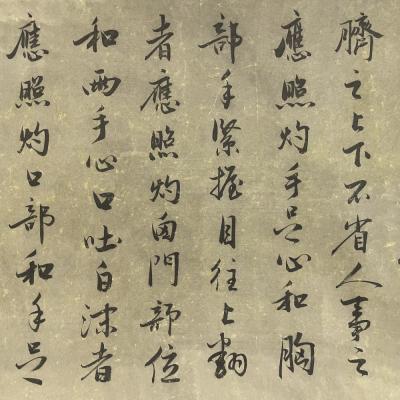 臍之上下不省人事之
應照灼手足心和胸
部手緊握目往上翻
者應照灼囟門部位
和两手心口吐白沫者
應照灼口部和手足